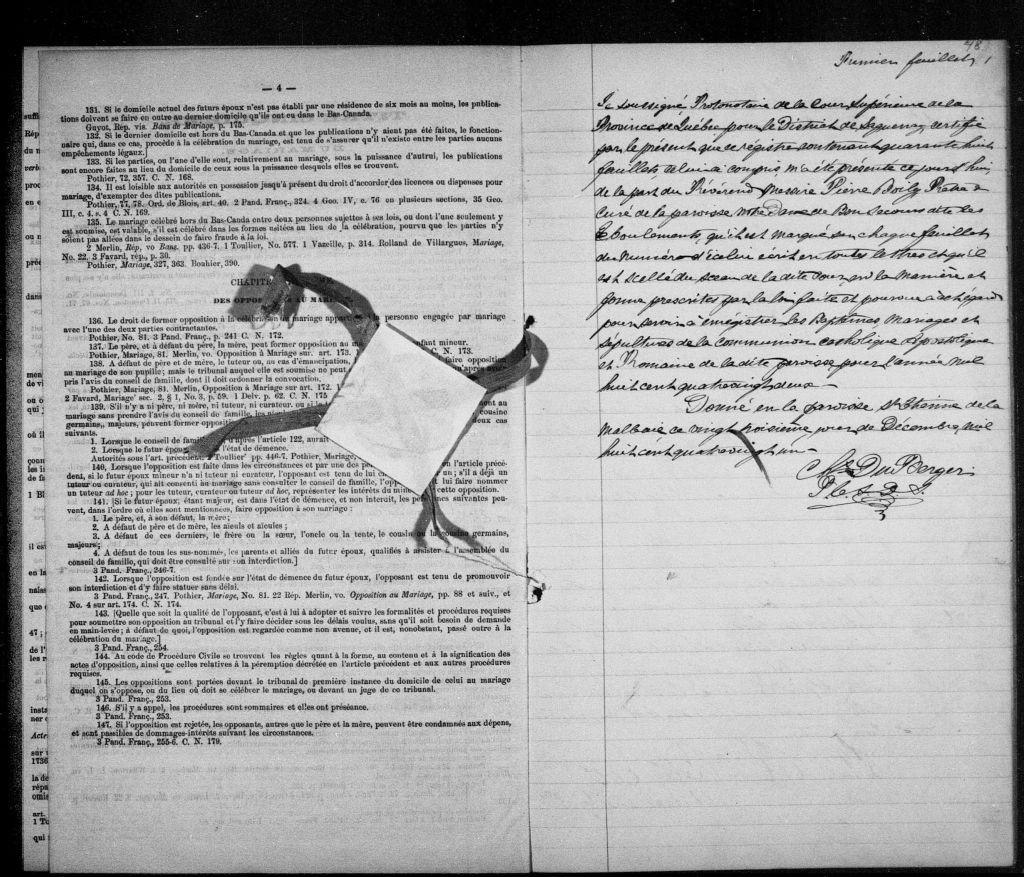 — 4 —
131. Si le domicile actuel des futurs époux n'est pas établi par une résidence de six mois au moins, les publica-
tions doivent se faire en outre au dernier domicile qu'ils ont eu dans le Bas-Canada.
Guyot, Rep. vis. Bans de Mariage, p. 175.
132. Si le dernier domicile est hors du Bas-Canada et que les publications n'y aient pas été faites, le fonction-
naire qui, dans ce cas, procède à la célébration du mariage, est tenu de s'assurer qu'il n'existe entre les parties aucuns
empêchements légaux.]
133. Si les parties, ou l'une d'elle sont, relativement au mariage, sous la puissance d'autrui, les publications
sont encore faites au lieu du domicile de ceux sous la puissance desquels elles se trouvent.
Pothier, 72, 357. C. N. 168.
134. Il est loisible aux autorités en possession jusqu'à présent du droit d'accorder des licences ou dispenses pour
mariage, d'exempter des dites publications.
Pothier, 77, 78. Ord. de Blois, art. 40. 2 Pand. Franç., 324. 4 Geo. IV, c. 76 en plusieurs sections, 35 Geo.
III, c. 4. s. 4 C. N. 169.
135. Le mariage célébré hors du Bas-Canada entre deux personnes sujettes à ses lois, ou dont l'une seulement y
est soumise, est valable, s'il est célébré dans les formes usitées au lieu de la célébration, pourvu que les parties n'y
soient pas allées dans le dessein de faire fraude à la loi.
2 Merlin, Rép, vo Bans. pp. 436-7. 1 Toullier, No. 577. 1 Vazeille, p. 314. Rolland de Villargues, Mariage,
No. 22. 3 Favard, rép., p. 30.
Pothier, Mariage, 327, 363. Bouhier, 390.
CHAPITE
DES OPPOS AU MARI
136. Le droit de former opposition à la célébration du mariage appar personne engagée par mariage
avec l'une des deux parties contractantes.
Pothier, No. 81. 3 Pand. Franç., p. 241 C. N. 172.
137. Le père, et à défaut du père, la mère, peut former opposition au enfant mineur.
Pothier, Mariage, 81. Merlin, vo. Opposition à Mariage sur. art. 173. C. N. 173.
138. A défaut de père et de mère, le tuteur ou, au cas d'émancipation faire opposition
au mariage de son pupille; mais le tribunal auquel elle est soumise ne peut qu'après avoir
pris l'avis du conseil de famille, dont il doit ordonner la convocation.
Pothier, Mariage, 81. Merlin, Opposition à Mariage sur art. 172. 1
2 Favard, Mariage' sec. 2, § 1, No. 3, p. 59. 1 Delv. p. 62. C. N. 175
139. S'il n'y a ni père, ni mère, ni tuteur, ni curateur, ou si le tuteur ont au
mariage sans prendre l'avis du conseil de famille, les cousine
germains, majeurs, peuvent former opposition deux cas
suivants.
1. Lorsque le conseil de famille d'après l'article 122, aurait
2. Lorsque le futur époux l'état de démence.
Autorités sous l'art. précédent Toullier pp. 446-7. Pothier, Mariage
140. Lorsque l'opposition est faite dans les circonstances et par une des pe l'article précé-
dent, si le futur époux mineur n'a ni tuteur ni curateur, l'opposant est tenu de lui ; s'il a déjà un
tuteur ou curateur, qui ait consenti au mariage sans consulter le conseil de famille, l'oppo lui faire nommer
un tuteur ad hoc; pour les tuteur, curateur ou tuteur ad hoc, représenter les intérêts du mineur cette opposition.
141. [Si le futur époux, étant majeur, est dans l'état de démence, et non interdit, les pe suivantes peu-
vent, dans l'ordre où elles sont mentionnées, faire opposition à son mariage :
1. Le père, et, à son défaut, la mère;
2. A défaut de père et de mère, les aïeuls et aïeules;
3. A défaut de ces derniers, le frère ou la sœur, l'oncle ou la tante, le cousin ou la cousine germains,
majeurs;
4. A défaut de tous les sus-nommés, les parents et alliés du futur époux, qualifiés à assister à l'assemblée du
conseil de famille, qui doit être consulté sur son interdiction.]
3 Pand. Franç., 246-7.
142. Lorsque l'opposition est fondée sur l'état de démence du futur époux, l'opposant est tenu de promouvoir
son interdiction et d'y faire statuer sans délai.
3 Pand. Franç., 247. Pothier, Mariage, No. 81. 22 Rép. Merlin, vo. Opposition au Mariage, pp. 88 et suiv., et
No. 4 sur art. 174. C. N. 174.
143. [Quelle que soit la qualité de l'opposant, c'est à lui à adopter et suivre les formalités et procédures requises
pour soumettre son opposition au tribunal et l'y faire décider sous les délais voulus, sans qu'il soit besoin de demande
en main-levée; à défaut de quoi, l'opposition est regardée comme non avenue, et il est, nonobstant, passé outre à la
célébration du mariage.]
3 Pand. Franç., 254.
144. Au code de Procédure Civile se trouvent les règles quant à la forme, au contenu et à la signification des
actes d'opposition, ainsi que celles relatives à la péremption décrétée en l'article précédent et aux autres procédures
requises.
145. Les oppositions sont portées devant le tribunal de première instance du domicile de celui au mariage
duquel on s'oppose, ou du lieu où doit se célébrer le mariage, ou devant un juge de ce tribunal.
3 Pand. Franç., 253.
146. S'il y a appel, les procédures sont sommaires et elles ont préséance.
3 Pand. Franç., 253.
147. Si l'opposition est rejetée, les opposants, autres que le père et la mère, peuvent être condamnés aux dépens,
et sont passibles de dommages-intérêts suivant les circonstances.
3 Pand. Franç., 255-6. C. N. 179.
48
Premier feuillet 1
Je soussigné Protonotaire de la Cour Supérieure de la
Province de Québec pour le District de Saguenay certifie
par le présent que ce régistre contenant quarante huit
feuillets celui-ci compris m'a été présenté ce jourd'hui
de la part du Révérend Messire Pierre Boily Prêtre &
curé de la paroisse Notre Dame de Bon Secours dite les
Eboulements, qu'il est marqué sur chaque feuillet
du Numéro d'icelui écrit en toutes lettres et qu'il
est scellé du sceau de la dite Cour en la manière et
forme prescrites par la loi faite et pourvue à cet égard
pour servir à enrégistrer les Baptêmes Mariages et
sepultures de la Communion catholique Apostolique
et Romaine de la dite paroisse pour l'année Mil
huit cent quatrevingt deux —
Donné en la paroisse St Etienne de la
Malbaie ce vingt troisième jour de Décembre Mil
huit cent quatrevingt un —
Chs Du Berger
P. C. S. D. S.